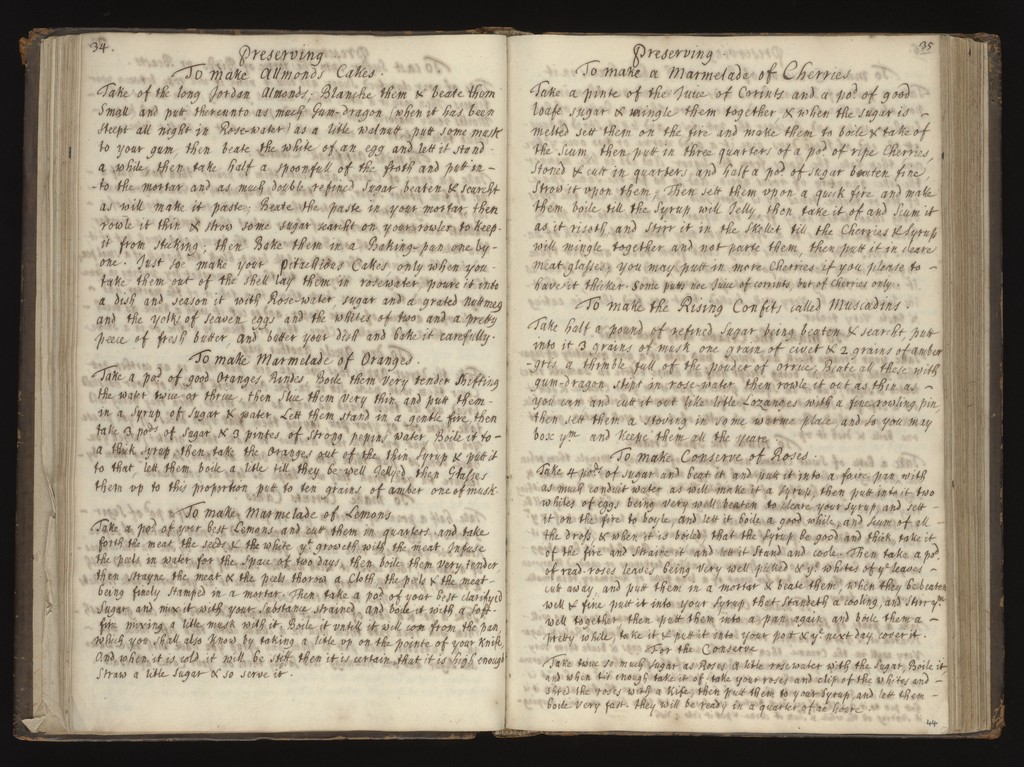 34.
Preserving
To make Allmonds Cakes.
Take of the long Jordan Almonds, Blanche them & beate them
Small and putt thereunto as much Gum-dragon (when it has been
Steept all night in Rose-water) as a litle walnutt putt some musk
to your gum, then beate the white of an egg and lett it stand
a while, then take half a spoonfull of the froth and putt in-
-to the mortar and as much double refined Sugar beaten & searcht
as will make it paste; Beate the paste in your mortar, then
rowle it thin & strow some sugar searcht on your rowler to keep
it from sticking; then Bake them in a Baking-pan one by-
one. Just so make your Pitachious Cakes only when you
take them out of the shell lay them in rosewater, poure it into
a dish and season it with Rose-water sugar and a grated Nuttmeg
and the yolks of seaven eggs and the whites of two and a pretty
peece of fresh butter, and butter your dish and bake it carefully.
To make Marmelade of Oranges.
Take a pod. of good Oranges Rindes, Boile them very tender shifting
the water twice or thrice, then slice them very thin and putt them
in a Syrup of Sugar & water Lett them stand in a gentle fire, then
take 3 pods of Sugar & 3 pintes of Strong pepins water, Boile it to-
a thick Syrup then take the Oranges out of the thin Syrup & putt it
to that lett them boile a litle till they be well Jellyed then Glasses
them up to this proportion put to ten grains of amber one of musk
To make Marmelade of Lemons.
Take a pod. of your best Lemons and cutt them in quarters, and take
forth the meat, the seeds & the white yt. groweth with the meat. Infuse
the peels in water for the space of two days, then boile them very tender
then strayne the meat & the peels thorow a Cloth, the peels & the meat
being finely stamped in a mortar. Then take a pod. of your best clarifyed
Sugar and mix it with your Substance strained, and boile it with a soft
fire mixing a litle musk with it. Boile it untill it will com from the pan,
which you shall also know by taking a litle up on the pointe of your Knife
And when it is cold it will be stiff then it is certain that it is high enough
Straw a litle Sugar & so serve it.
35
Preserving
To make a Marmelade of Cherries
Take a pinte of the Juice of Corints and a pod. of good
loafe sugar & mingle them together, & when the sugar is
melted sett them on the fire and make them to boile & take of
the Scum, then putt in three quarters of a pod. of ripe Cherries,
Stoned & cutt in quarters, and half a pod. of sugar beaten fine,
Strow it upon them, Then sett them upon a quick fire and make
them boile till the Syrup will Jelly, then take it of and Scum it
as it riseth, and stirr it in the skillet till the Cherries & Syrup
will mingle together and not parte them, then putt it in cleare
meat glasses, you may putt in more Cherries if you please to
have it thicker. Some putts noe Juice of corints, but of cherries only.
To make the Rising Confits called Muscadins.
Take half a pound of refined Sugar being beaten & searcht putt
into it 3 grains of musk one grain of civet & 2 grains of amber
gris a thimble full of the pouder of orrice, Beate all these with
gum-dragon steps in rose water then rowle it out as thin as
you can and cutt it out like litle Lozanges with a fine rowling pin
then sett them a stoving in some warme place and so you may
box ym. and Keepe them all the yeare
To make Conserve of Roses.
Take 4 pods. of sugar and beat it and putt it into a faire pan with
as much conduit water as will make it a Syrup, then putt into it two
whites of eggs being very well beaten to cleare your Syrup, and sett
it on the fire to boyle, and let it boile a good while, and scum of all
the dross, & when it is boiled that the Syrup be good and thick, take it
of the fire and straine it and let it stand and coole. Then take a pod.
of read roses leaves being very well picked & ye. whites of ye leaves
cut away, and put them in a mortar & beate them, when they be beaten
well & fine putt it into your Syrup, that standeth a cooling, and stirr ym.
well together, then putt them into a pan again, and boile them a
pretty while, take it & putt it into your pott & ye. next day cover it.
For the Conserve
Take twice so much Sugar as Roses, a litle rosewater with the Sugar, Boile it
and when tis enough take it of, take your roses and clip of the whites and
shred the roses with a Kife, then putt them to your Syrup, and lett them
boile very fast. they will be ready in a quarter of an houre
44